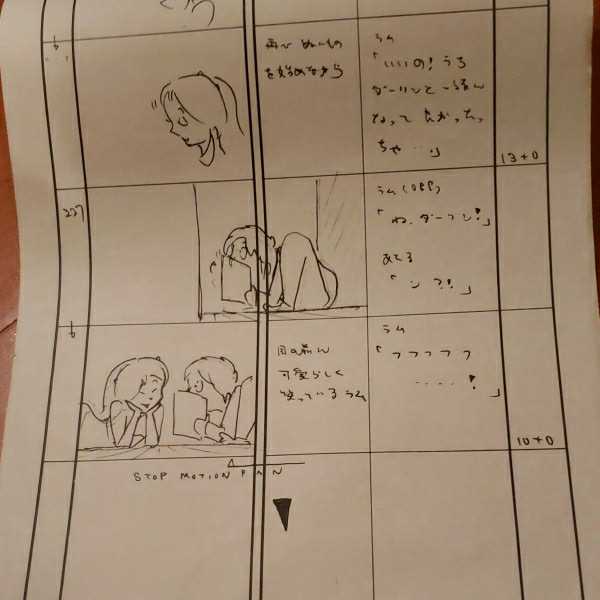 再び ぬいもの
を始めながら
ラム
「いいの! うち
ダーリンと一緒ん
なって よかったっ
ちゃ…」
13+0
227
ラム(OFF)
「ね、ダーリン!」
あたる
「ン?!」
目の前に
可愛らしく
笑っているラム
ラム
「フフフフフ
……!」
10+0
STOP MOTION PAN